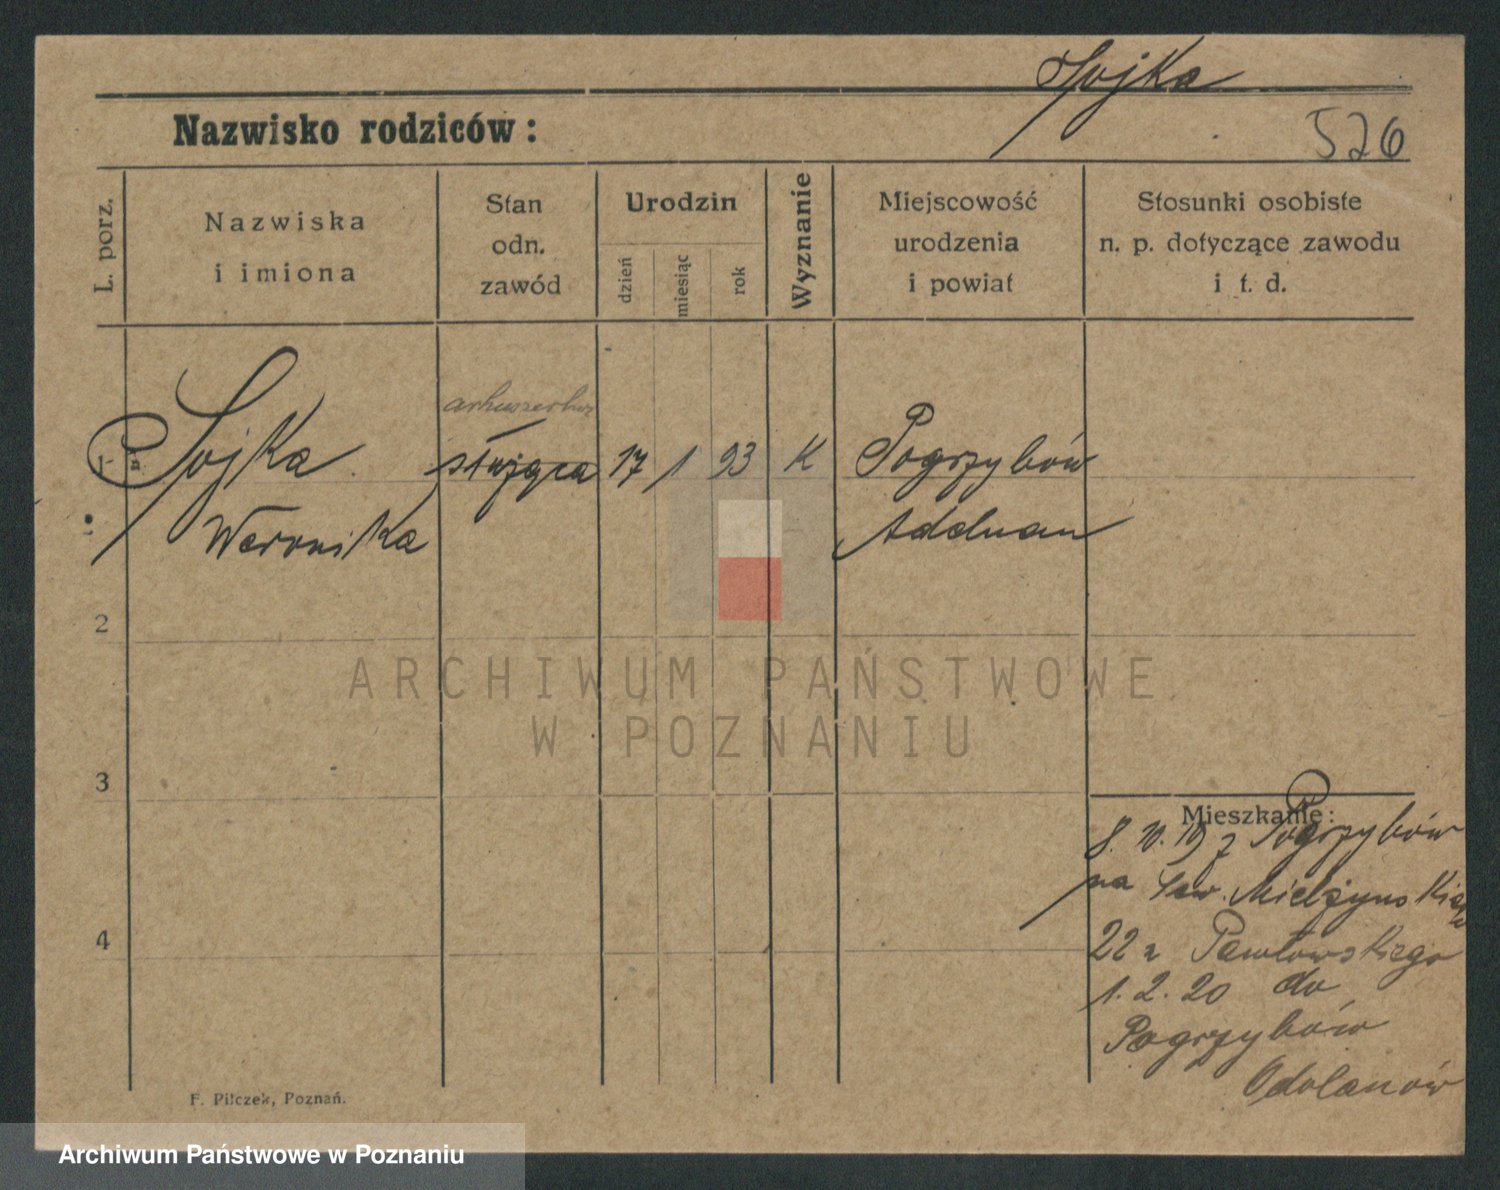 Sojka
Nazwisko rodziców:
526
L. porz.
Nazwiska
i imiona
Stan
odn.
zawód
Urodzin
dzień
miesiąc
rok
Wyznanie
Miejscowość
urodzenia
i powiat
Stosunki osobiste
n. p. dotyczące zawodu
i t. d.
1
Sojka
Weronika
służąca
17 1 93
K
Pogrzybów
Adelnau
2
ARCHIWUM PAŃSTWOWE
W POZNANIU
3
4
Mieszkanie:
8. 10. 19 z Pogrzybów
na Sew. Mielżyńskiego
22 u Pawłowskiego
1. 2. 20 do
Pogrzybów
Odolanów
F. Pilczek, Poznań.
Archiwum Państwowe w Poznaniu